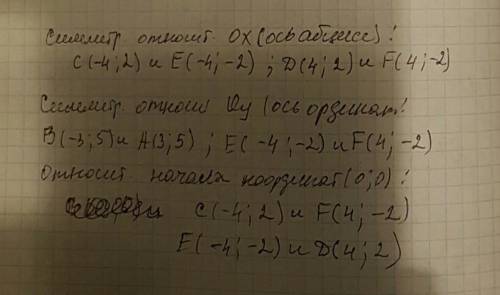 Симметр. относит. OX (ось абсцисс)!
C(-4; 2) и E(-4; -2) ; D(4; 2) и F(4; -2)
Симметр. относи Oy (ось ординат!
B(-3; 5) и A(3; 5) ; E(-4; -2) и F(4; -2)
относит. начала координат (0; 0)!
C(-4; 2) и F(4; -2)
E(-4; -2) и D(4; 2)